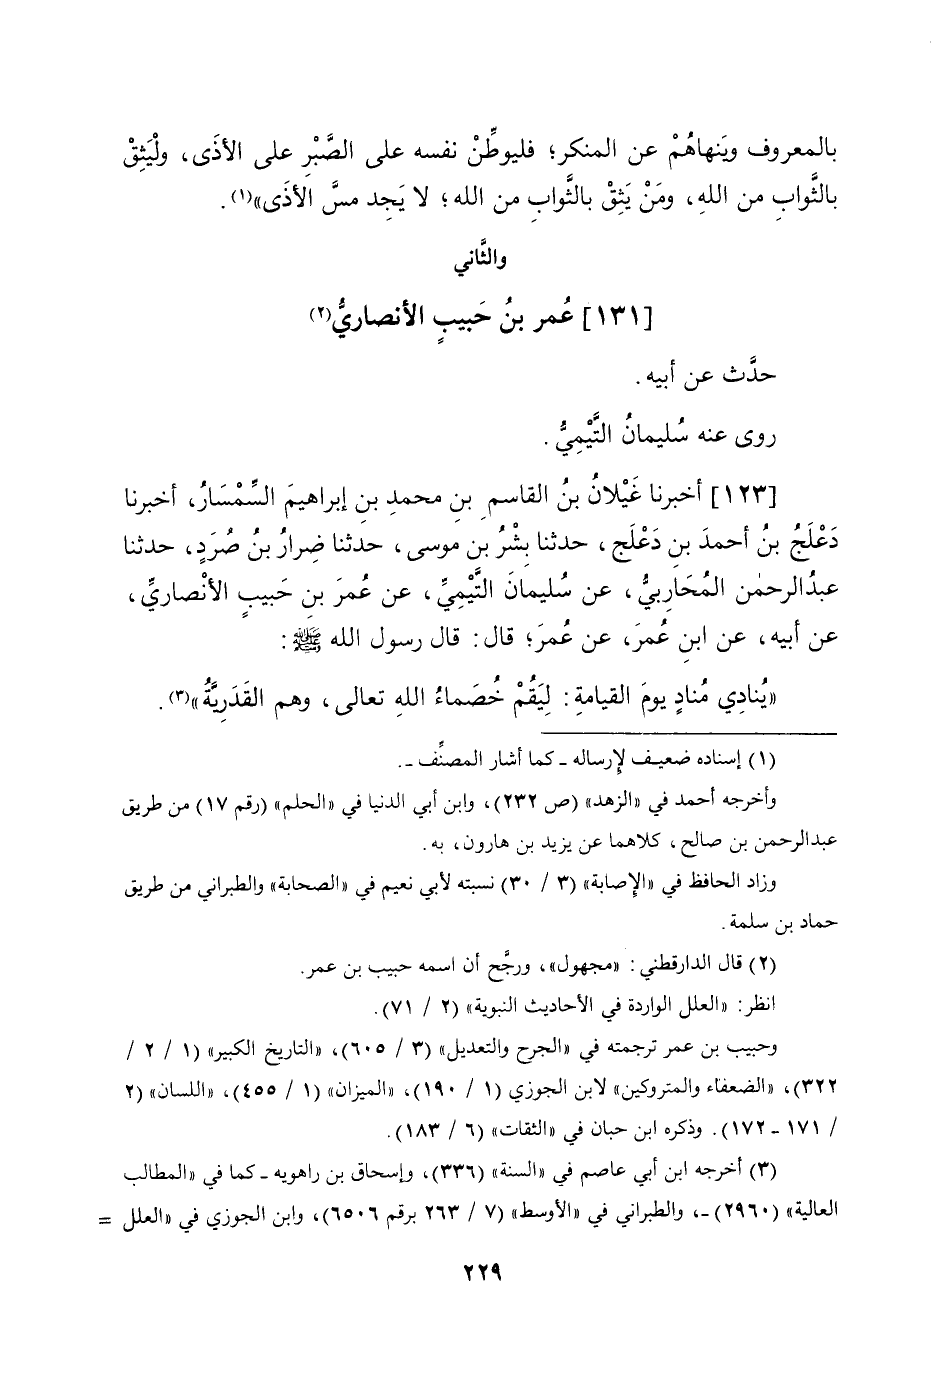 بالمعروف ويَنهاهُمْ عن المنكر؛ فليوطِّنْ نفسه على الصَّبْرِ على الأذَى، ولْيَثِقْ
بالثَّوابِ من اللهِ، ومَنْ يَثِقْ بالثَّوابِ من الله؛ لا يَجِد مسَّ الأذَى»(١).
والثَّاني
[١٣١] عُمر بنُ حَبيبٍ الأنصاريُّ(٢)
حدَّث عن أبيه.
روى عنه سُليمانُ التَّيْمِيُّ.
[١٢٣] أخبرنا غَيْلانُ بنُ القاسمِ بنِ محمدِ بنِ إبراهيمَ السِّمْسَارُ، أخبرنا
دَعْلَجُ بنُ أحمدَ بنِ دَعْلَج، حدثنا بِشْرُ بن موسى، حدثنا ضِرارُ بنُ صُرَدٍ، حدثنا
عبدُالرحمٰن المُحَاربيُّ، عن سُليمانَ التَّيْمِيِّ، عن عُمرَ بنِ حَبيبٍ الأنْصاريِّ،
عن أبيه، عن ابنِ عُمرَ، عن عُمرَ؛ قال: قال رسول الله ﷺ:
«يُنادِي مُنادٍ يومَ القيامةِ: لِيَقُمْ خُصَماءُ اللهِ تعالى، وهم القَدَريَّةُ»(٣).
(١) إسناده ضعيف لإرساله ـ كما أشار المصنِّف ـ.
وأخرجه أحمد في «الزهد» (ص ٢٣٢)، وابن أبي الدنيا في «الحلم» (رقم ١٧) من طريق
عبدالرحمن بن صالح، كلاهما عن يزيد بن هارون، به.
وزاد الحافظ في «الإصابة» (٣ / ٣٠) نسبته لأبي نعيم في «الصحابة» والطبراني من طريق
حماد بن سلمة.
(٢) قال الدارقطني: «مجهول»، ورجَّح أن اسمه حبيب بن عمر.
انظر: «العلل الواردة في الأحاديث النبوية» (٢ / ٧١).
وحبيب بن عمر ترجمته في «الجرح والتعديل» (٣ / ٦٠٥)، «التاريخ الكبير» (١ / ٢ /
٣٢٢)، «الضعفاء والمتروكين» لابن الجوزي (١ / ١٩٠)، «الميزان» (١ / ٤٥٥)، «اللسان» (٢
/ ١٧١ ـ ١٧٢). وذكره ابن حبان في «الثقات» (٦ / ١٨٣).
(٣) أخرجه ابن أبي عاصم في «السنة» (٣٣٦)، وإسحاق بن راهويه ـ كما في «المطالب
العالية» (٢٩٦٠) ـ، والطبراني في «الأوسط» (٧ / ٢٦٣ برقم ٦٥٠٦)، وابن الجوزي في «العلل =
٢٢٩